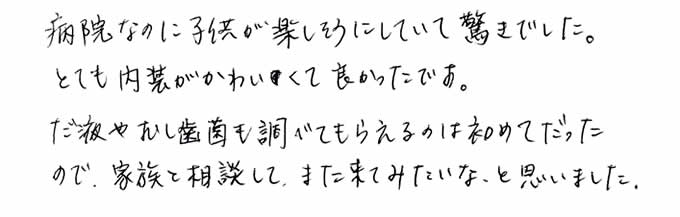 病院なのに子供が楽しそうにしていて驚きでした。
とても内装がかわいくて良かったです。
だ液やむし歯菌も調べてもらえるのは初めてだった
ので、家族と相談して、また来てみたいな、と思いました。